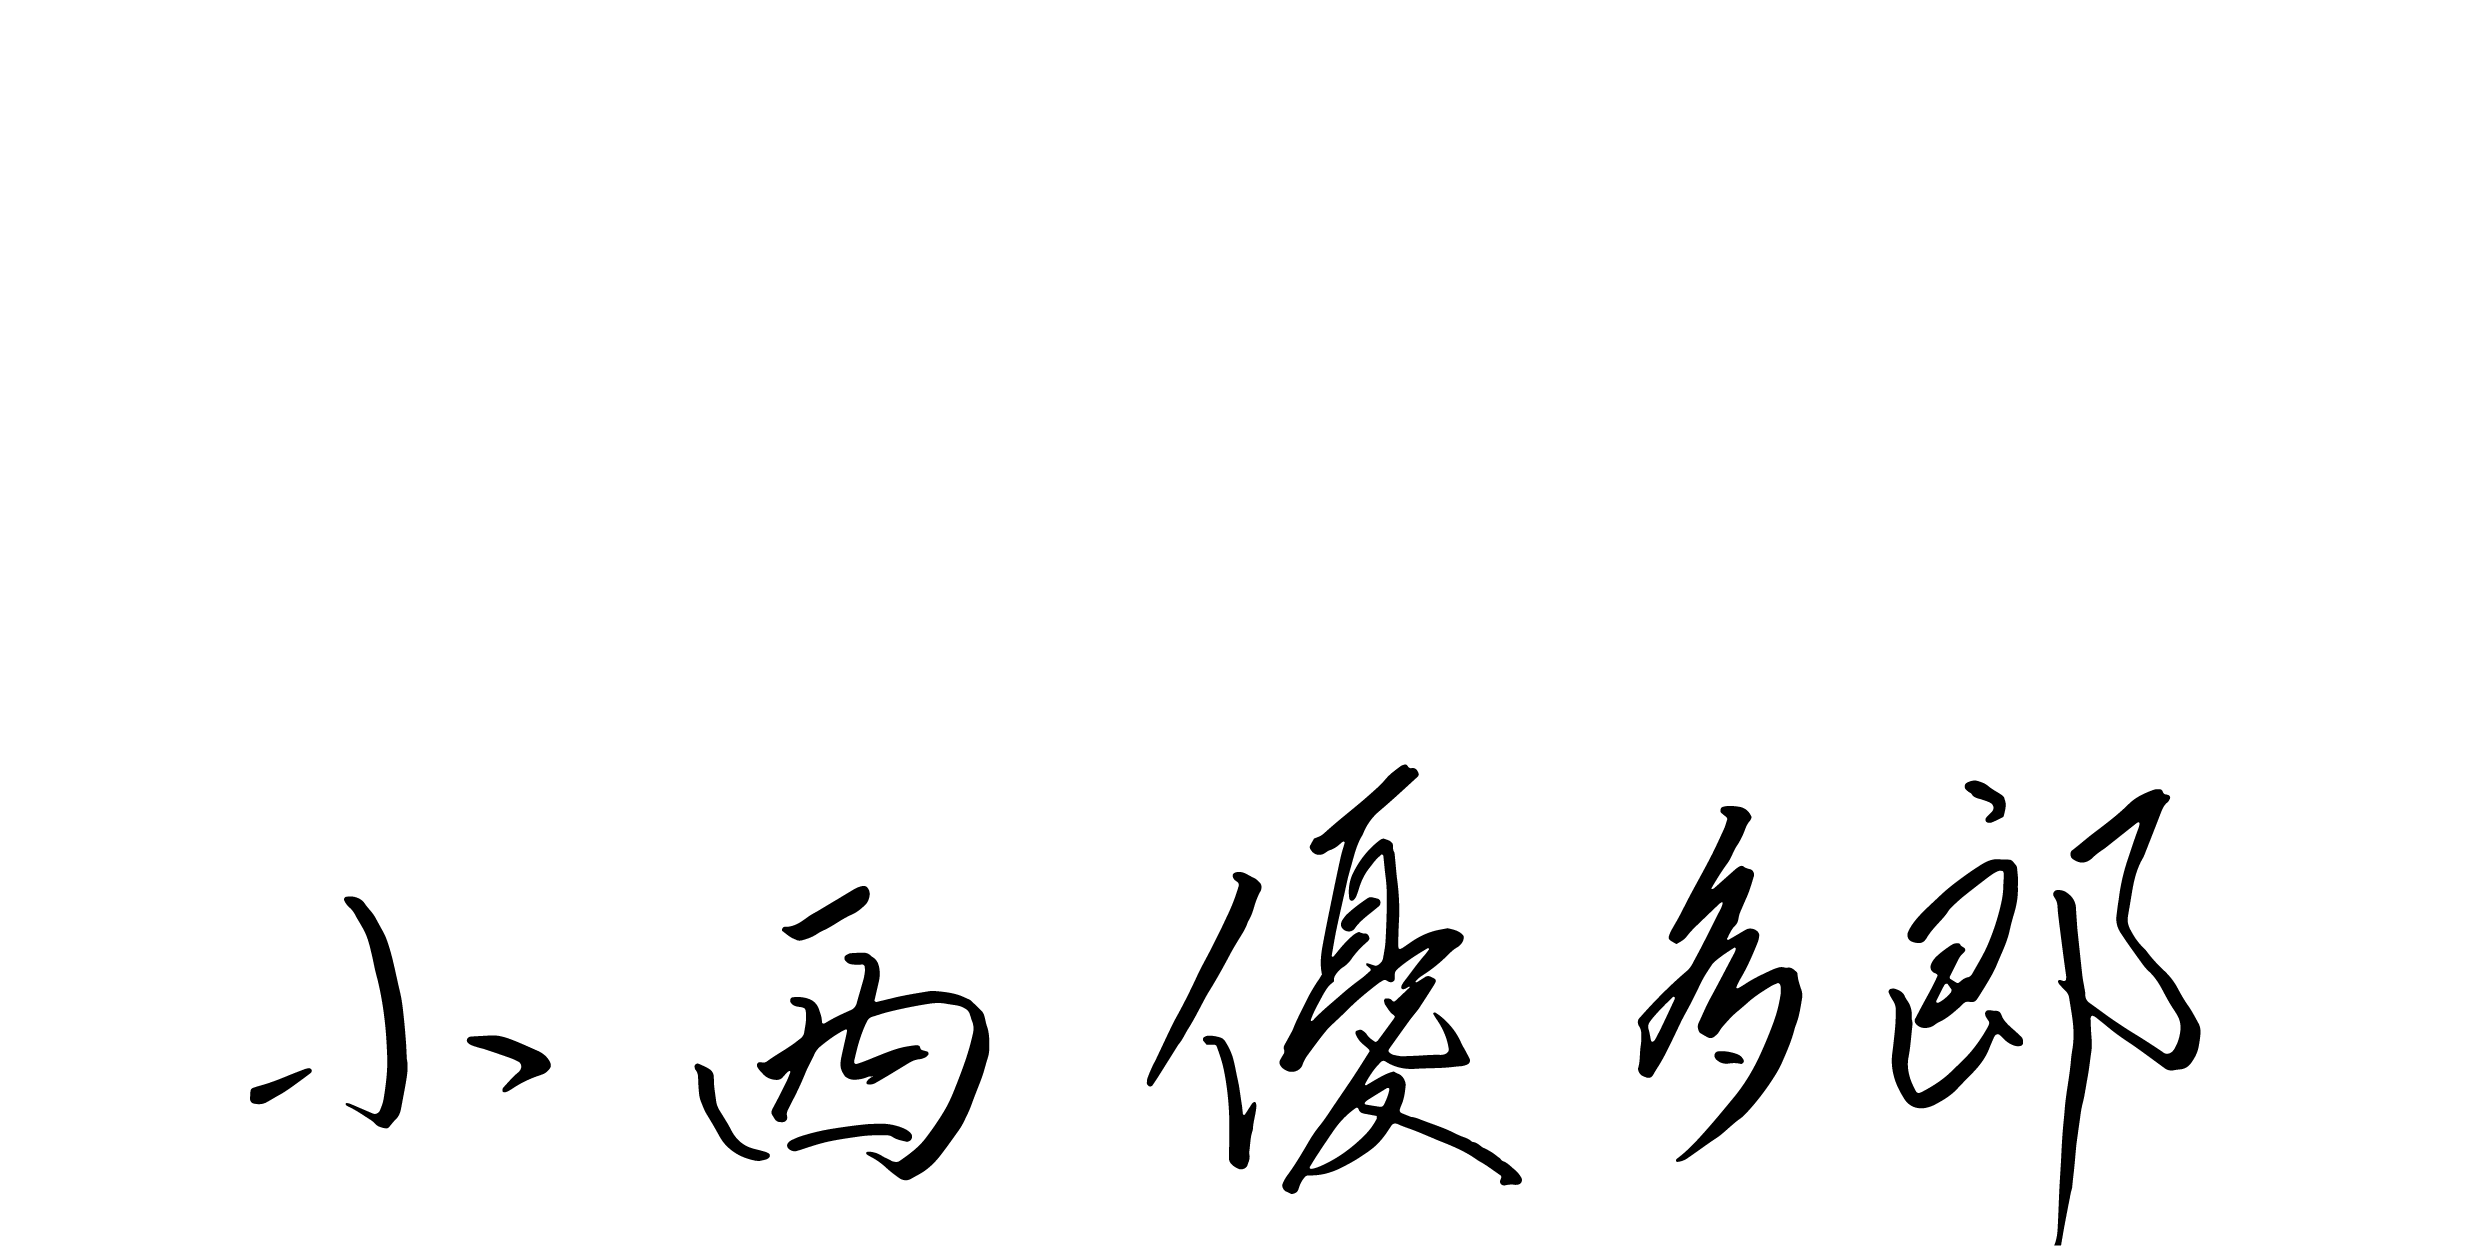 小西優多郎